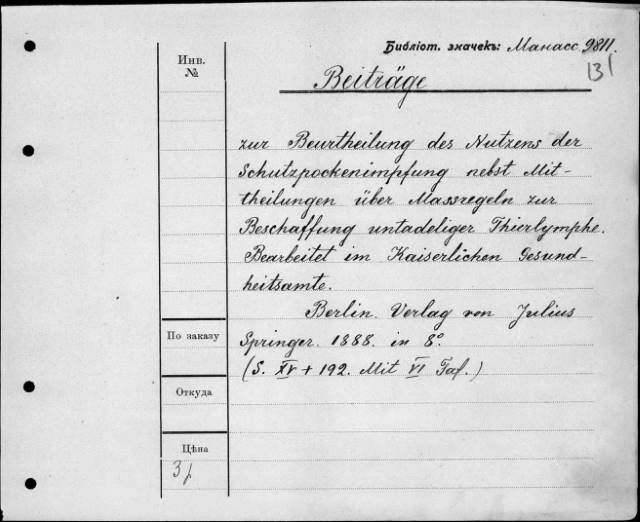 Библіот. значекъ: Манасс 9811.
131
Инв.
№
Beiträge
zur Beurtheilung des Nutzens der
Schutzpockenimpfung nebst Mit-
theilungen über Massregeln zur
Beschaffung untadeliger Thierlymphe.
Bearbeitet im Kaiserlichen Gesund-
heitsamte.
Berlin. Verlag von Julius
Springer. 1888. in 8°
(S. XV + 192. Mit VI Taf.)
По заказу
Откуда
Цѣна
3 р